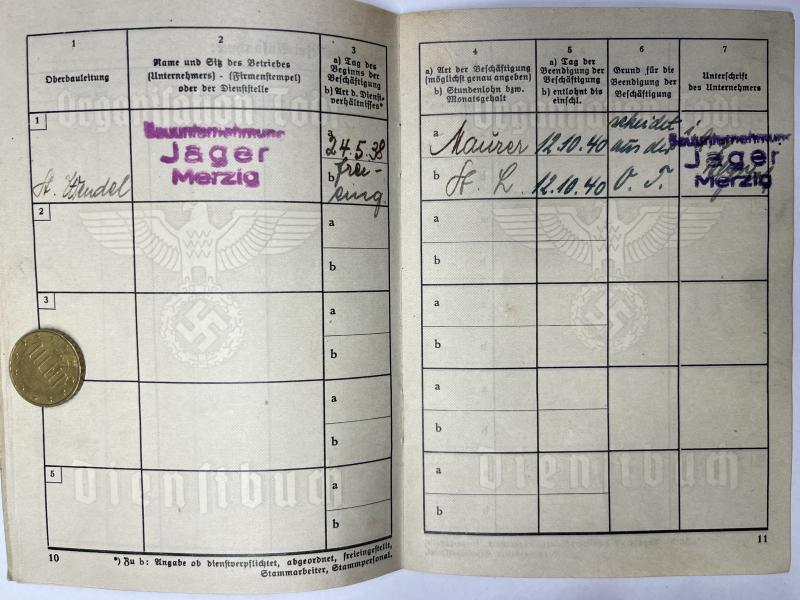 1
2
3
Oberbauleitung
Name und Sitz des Betriebes
(Unternehmers) - (Firmenstempel)
oder der Dienststelle
a) Tag des
Beginns der
Beschäftigung
b) Art d. Dienst-
verhältnisses*
1
St. Wendel
Bauunternehmung
Jäger
Merzig
a 24.5.38
b frei-
eing.
2
a
b
3
a
b
a
b
5
a
b
Organisation Todt
Dienstbuch
10
*) Zu b: Angabe ob dienstverpflichtet, abgeordnet, freieingestellt,
Stammarbeiter, Stammpersonal.
4
5
6
7
a) Art der Beschäftigung
(möglichst genau angeben)
b) Stundenlohn bzw.
Monatsgehalt
a) Tag der
Beendigung der
Beschäftigung
b) entlohnt bis
einschl.
Grund für die
Beendigung der
Beschäftigung
Unterschrift
des Unternehmers
a Maurer 12.10.40 scheidet
aus der
b St. L. 12.10.40 O. T.
Bauunternehmung
Jäger
Merzig
a
b
a
b
a
b
a
b
Organisation Todt
Dienstbuch
11